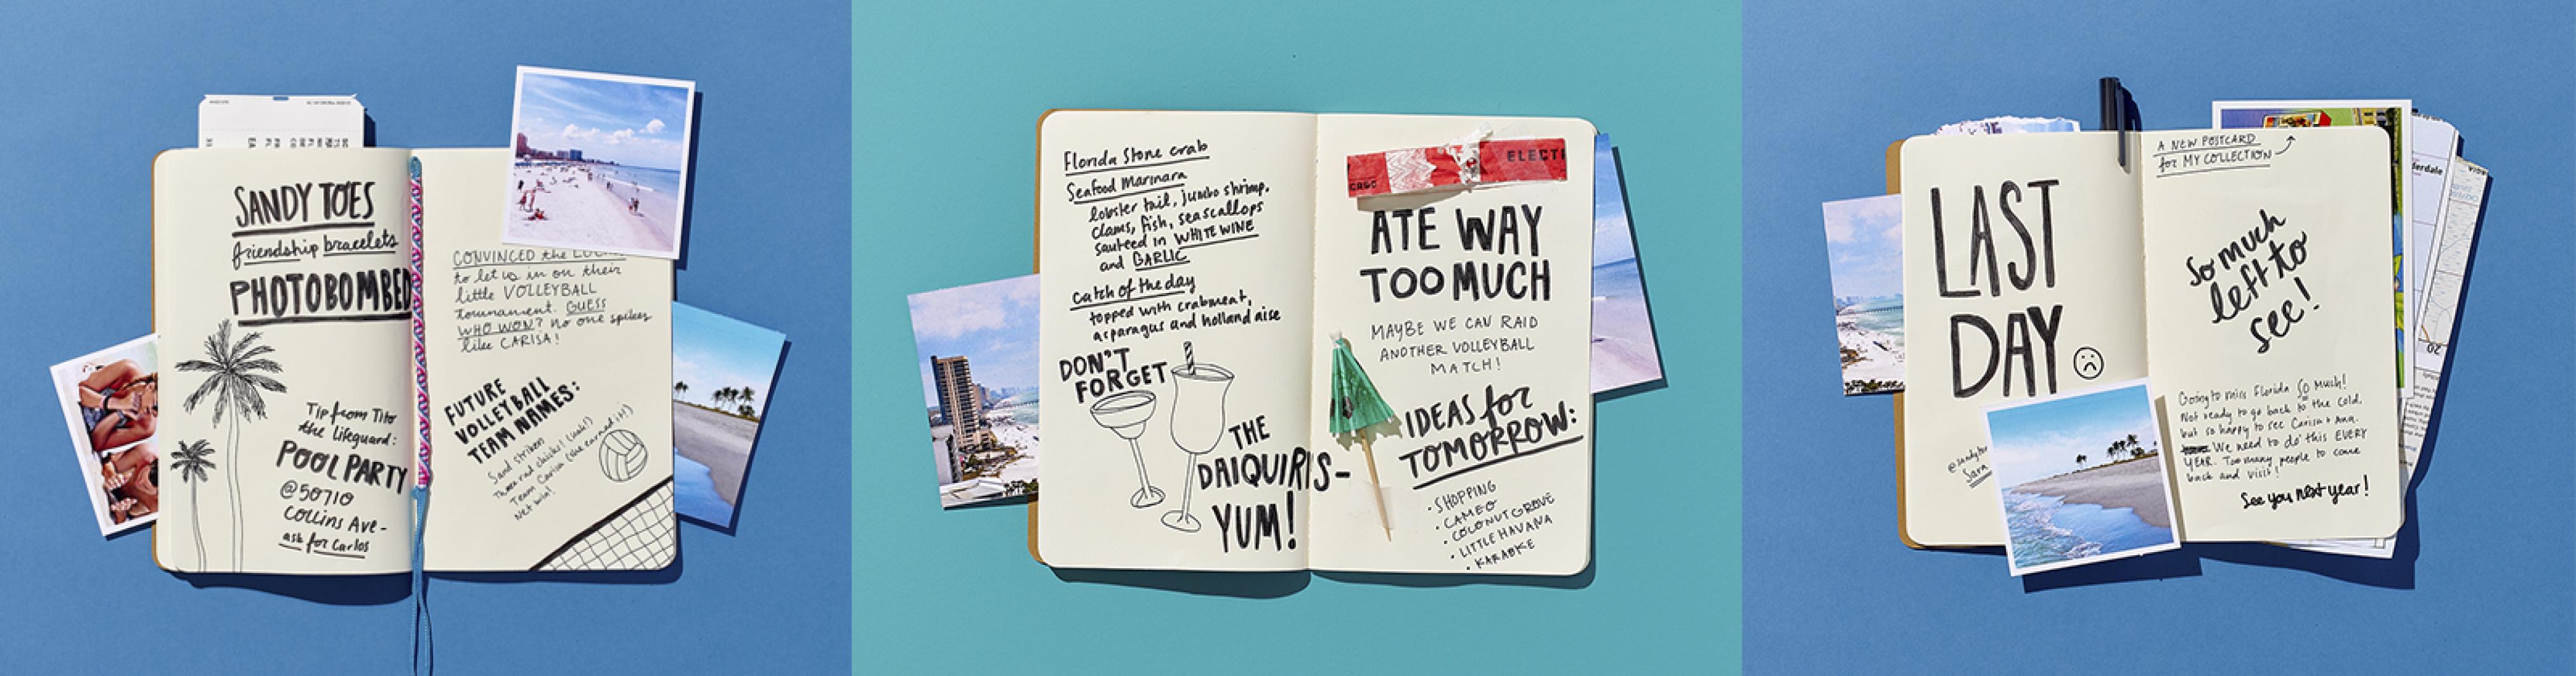 SANDY TOES
friendship bracelets
PHOTOBOMBED
Tip from Tito
the lifeguard:
POOL PARTY
@50710
Collins Ave-
ask for Carlos
CONVINCED the
to let us in on their
little VOLLEYBALL
tournament. GUESS
WHO WON? no one spikes
like CARISA!
FUTURE
VOLLEYBALL
TEAM NAMES:
Sand strikers
Three rad chicks! (look!)
Team Carisa (she earned it!)
Net win!
Florida Stone crab
Seafood Marinara
lobster tail, jumbo shrimp,
clams, fish, seascallops
sauteed in WHITE WINE
and GARLIC
catch of the day
topped with crabmeat,
asparagus and hollandaise
DON'T
FORGET
THE
DAIQUIRIS-
YUM!
ELECTI
ATE WAY
TOO MUCH
MAYBE WE CAN RAID
ANOTHER VOLLEYBALL
MATCH!
IDEAS for
TOMORROW:
• SHOPPING
• CAMEO
• COCONUT GROVE
• LITTLE HAVANA
• KARAOKE
LAST
DAY
Sara
A NEW POSTCARD
for MY COLLECTION
derdale
So much
left to
see!
Going to miss Florida SO much!
Not ready to go back to the cold,
but so happy to see Carisa + Ana.
We need to do this EVERY
YEAR. Too many people to come
back and visit!
See you next year!